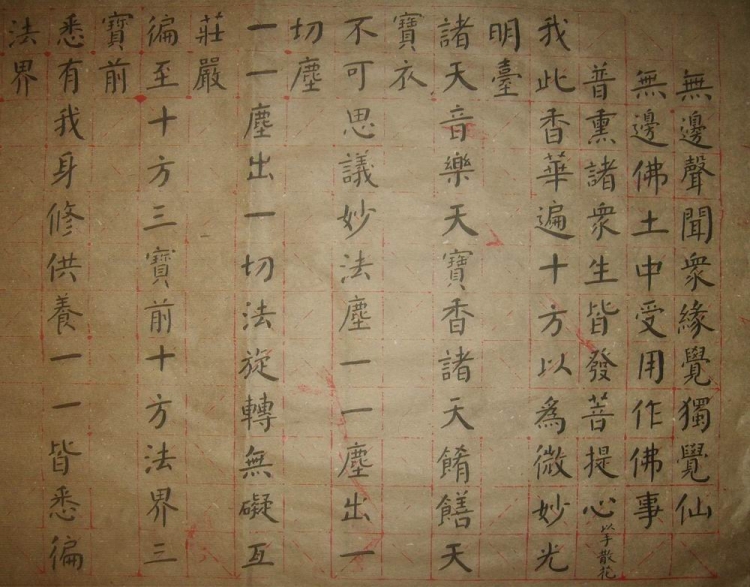 無邊聲聞衆緣覺獨覺仙
無邊佛土中受用作佛事
普熏諸衆生皆發菩提心 以手散花
我此香華遍十方以爲微妙光
明臺
諸天音樂天寶香諸天餚饍天
寶衣
不可思議妙法塵一一塵出一
切塵
一一塵出一切法旋轉無礙互
莊嚴
徧至十方三寶前十方法界三
寶前
悉有我身修供養一一皆悉徧
法界